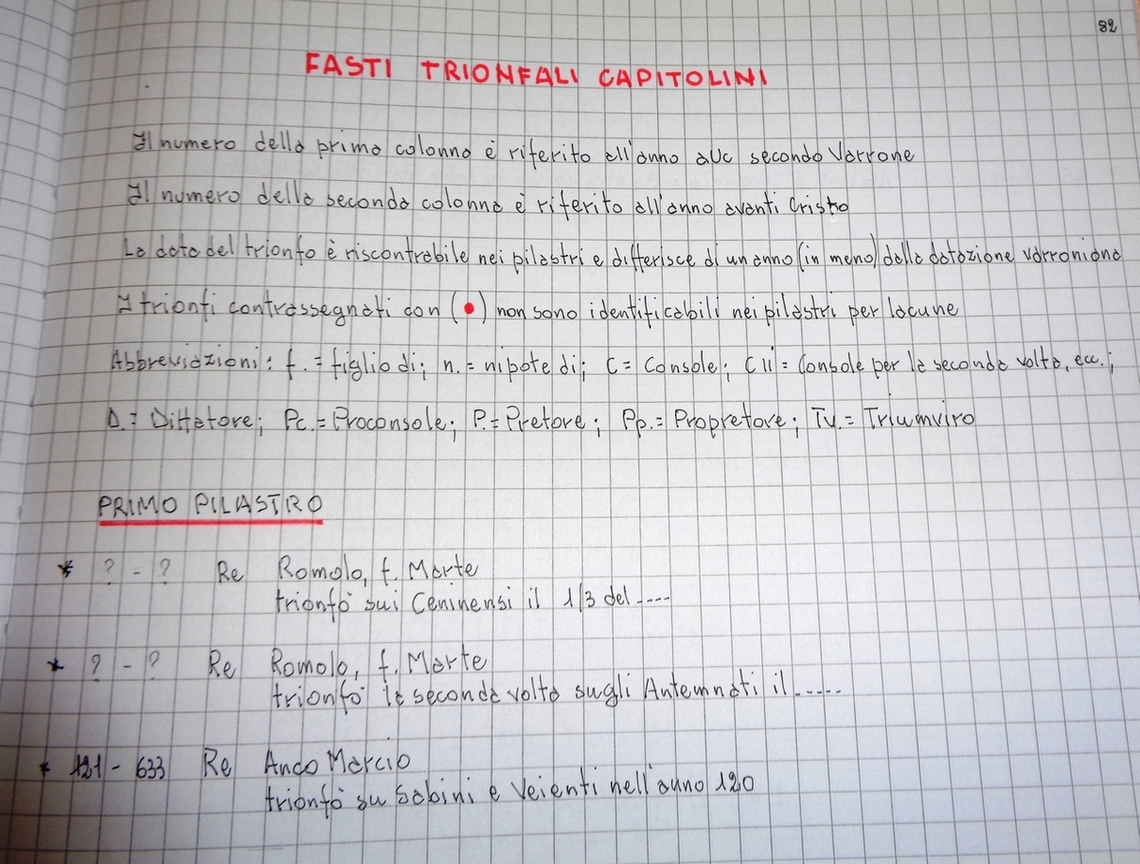 82
FASTI TRIONFALI CAPITOLINI
Il numero della prima colonna è riferito all'anno aUc secondo Varrone
Il numero della seconda colonna è riferito all'anno avanti Cristo
La data del trionfo è riscontrabile nei pilastri e differisce di un anno (in meno) dalla datazione varroniana
I trionfi contrassegnati con (•) non sono identificabili nei pilastri per lacune
Abbreviazioni: f. = figlio di; n. = nipote di; C = Console; C II = Console per la seconda volta, ecc.;
D. = Dittatore; Pc. = Proconsole; P. = Pretore; Pp. = Propretore; Tv. = Triumviro
PRIMO PILASTRO
* ? - ? Re Romolo, f. Marte
trionfò sui Ceninensi il 1/3 del ....
* ? - ? Re Romolo, f. Marte
trionfò la seconda volta sugli Antemnati il .....
* 121 - 633 Re Anco Marcio
trionfò su Sabini e Veienti nell'anno 120